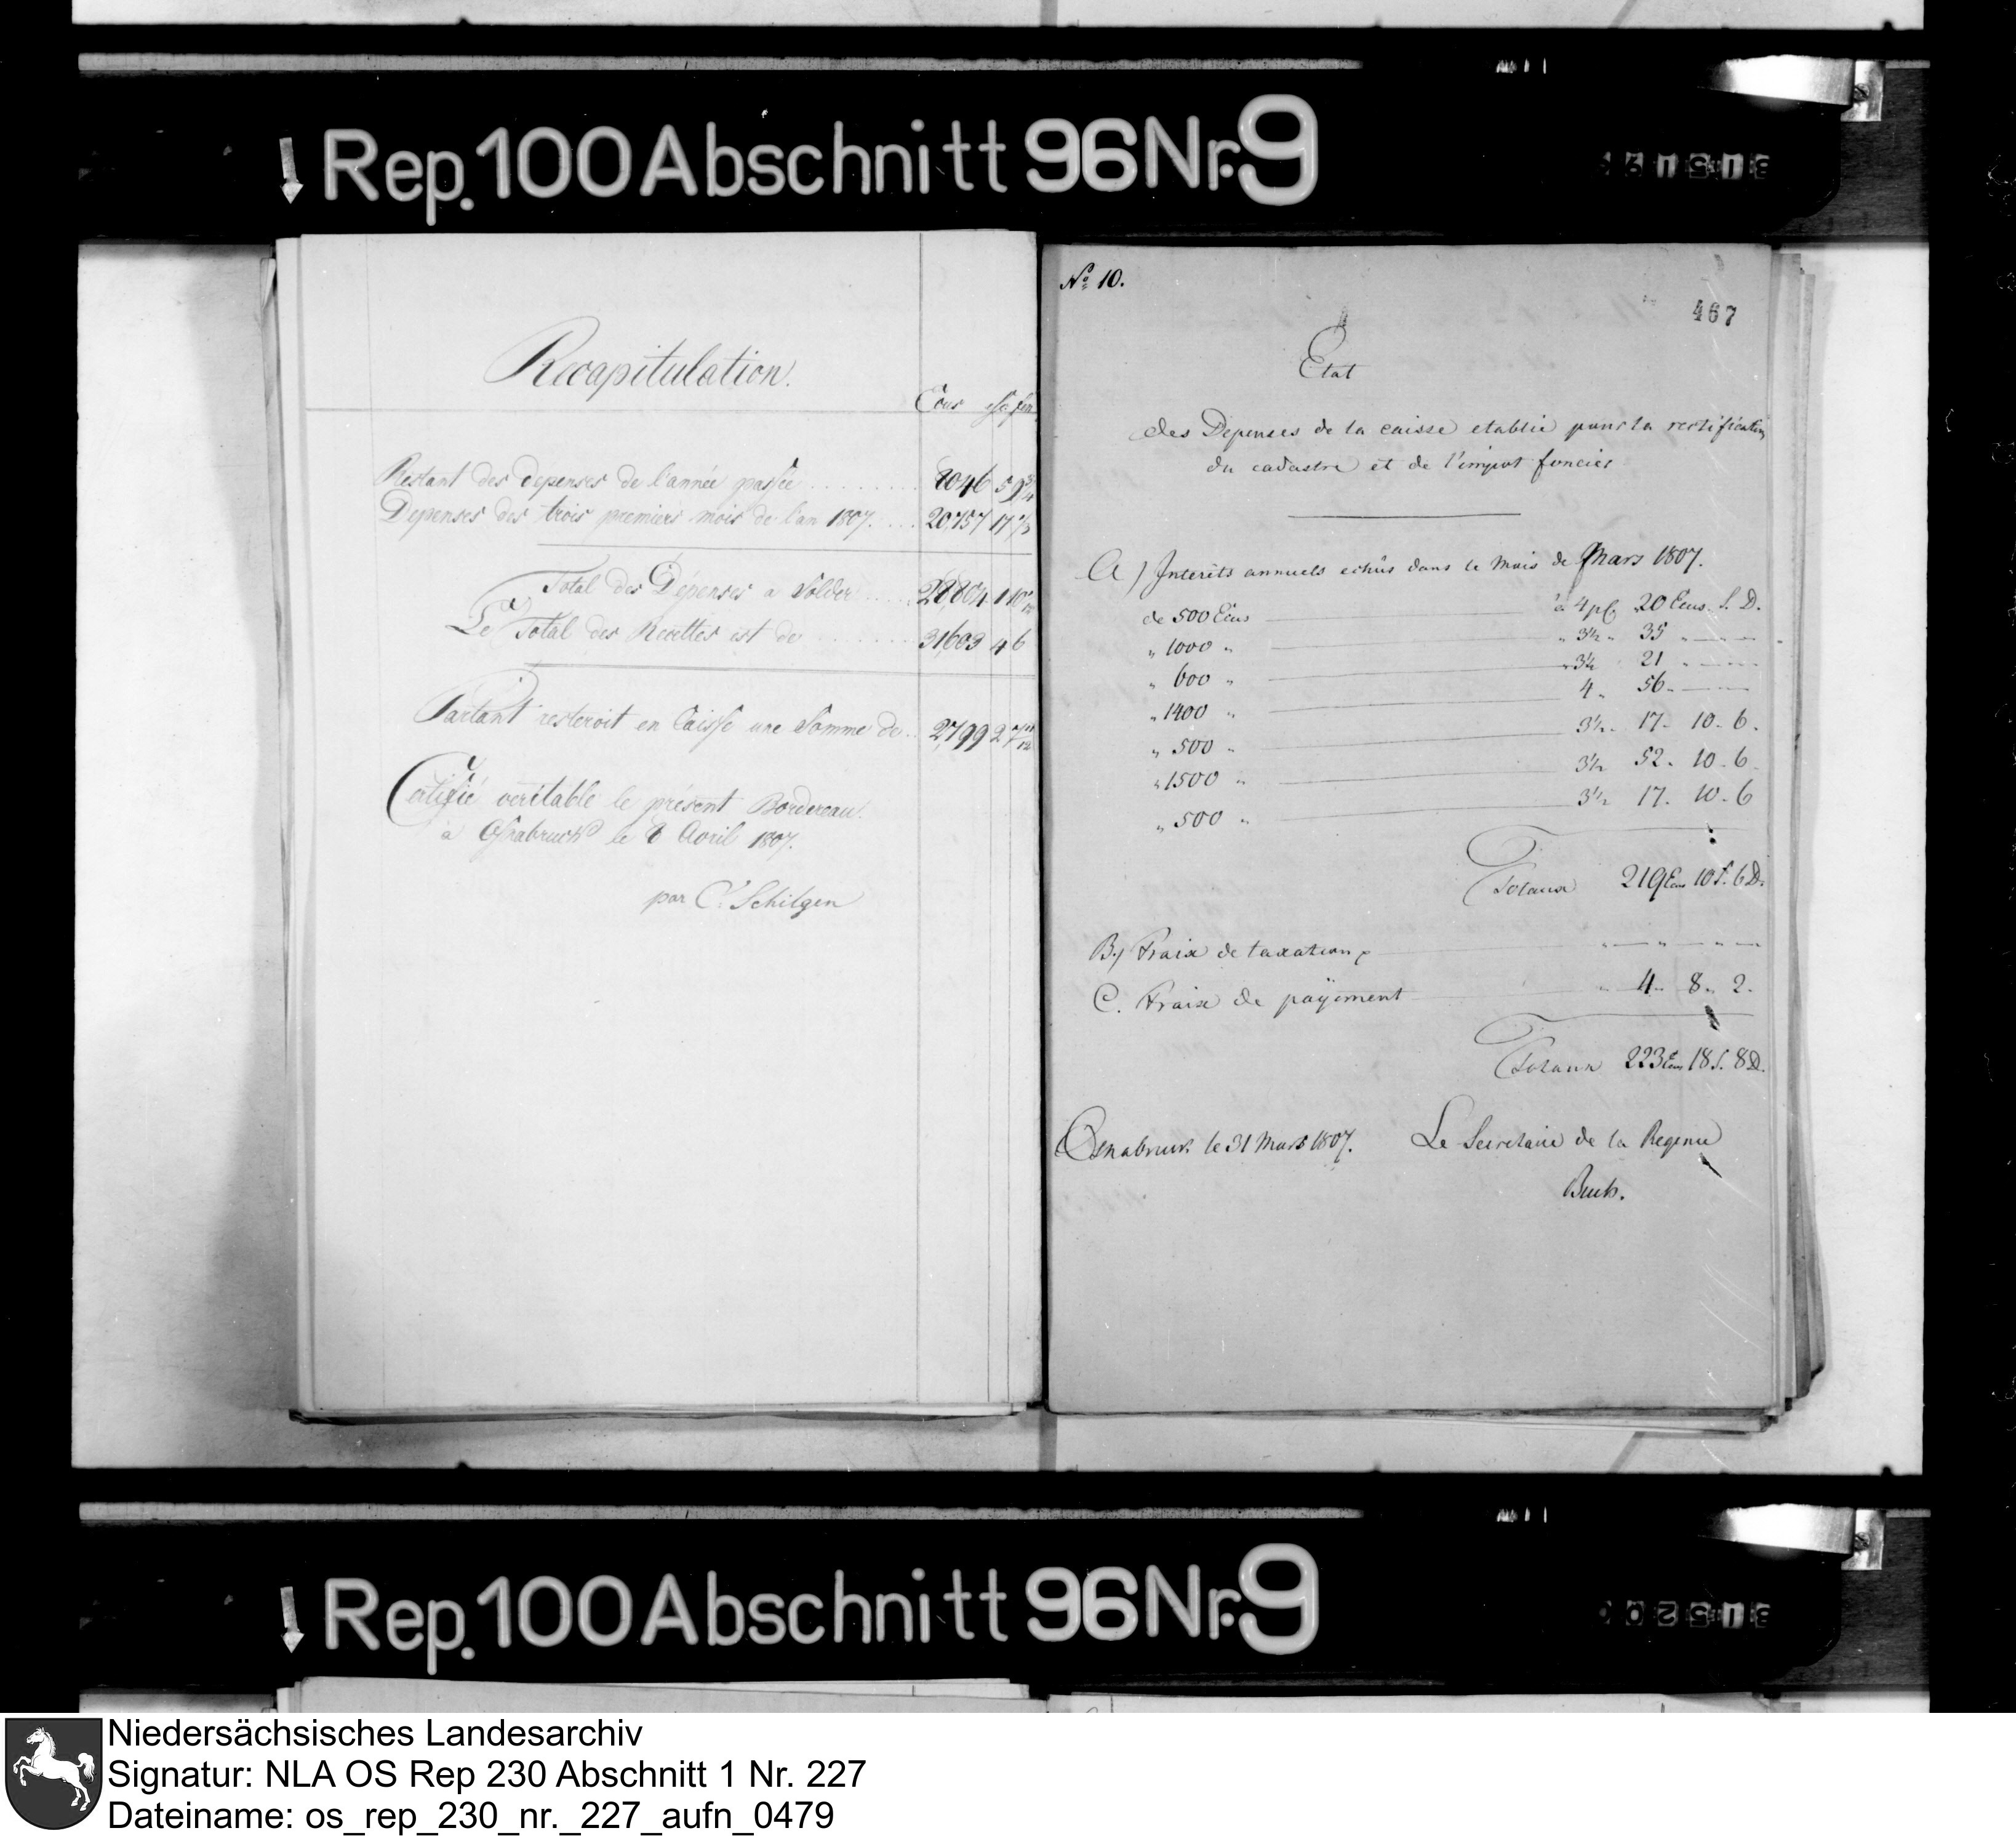 Rep. 100 Abschnitt 96 Nr. 9
Recapitulation.
Ecus
Restant des depenses de l'année passée 8046 5
Depenses des trois premiers mois de l'an 1807. 20,757 17
Total des Dépenses a Solder 28,804 1 10
Le Total des Recettes est de 31,603 4 6
Partant resteroit en Caisse une Somme de 2,799 2
Certifié veritable le présent Bordereau.
à Osnabruck le 8 Avril 1807.
par C. Schilgen
No 10.
467
Etat
des Depenses de la caisse etablie pour la rectification
du cadastre et de l'impot foncier
A) Interêts annuels echûs dans le Mois de Mars 1807.
de 500 Ecus à 4 pC 20 Ecus. S. D.
" 1000 " " 3½ " 35 " — —
" 600 " " 3½ 21 " — —
" 1400 " 4 " 56 — —
" 500 " 3½ 17. 10. 6.
" 1500 " 3½ 52. 10. 6
" 500 " 3½ 17. 10. 6
Totaux 219 Ecus 10 S. 6 D.
B.) Fraix de taxation " — " — " —
C. Fraix de payement " 4 " 8 " 2.
Totaux 223 Ecus 18 S. 8 D.
Osnabruck le 31 Mars 1807. Le Secretaire de la Regence
Buch.
Rep. 100 Abschnitt 96 Nr. 9
Niedersächsisches Landesarchiv
Signatur: NLA OS Rep 230 Abschnitt 1 Nr. 227
Dateiname: os_rep_230_nr._227_aufn_0479